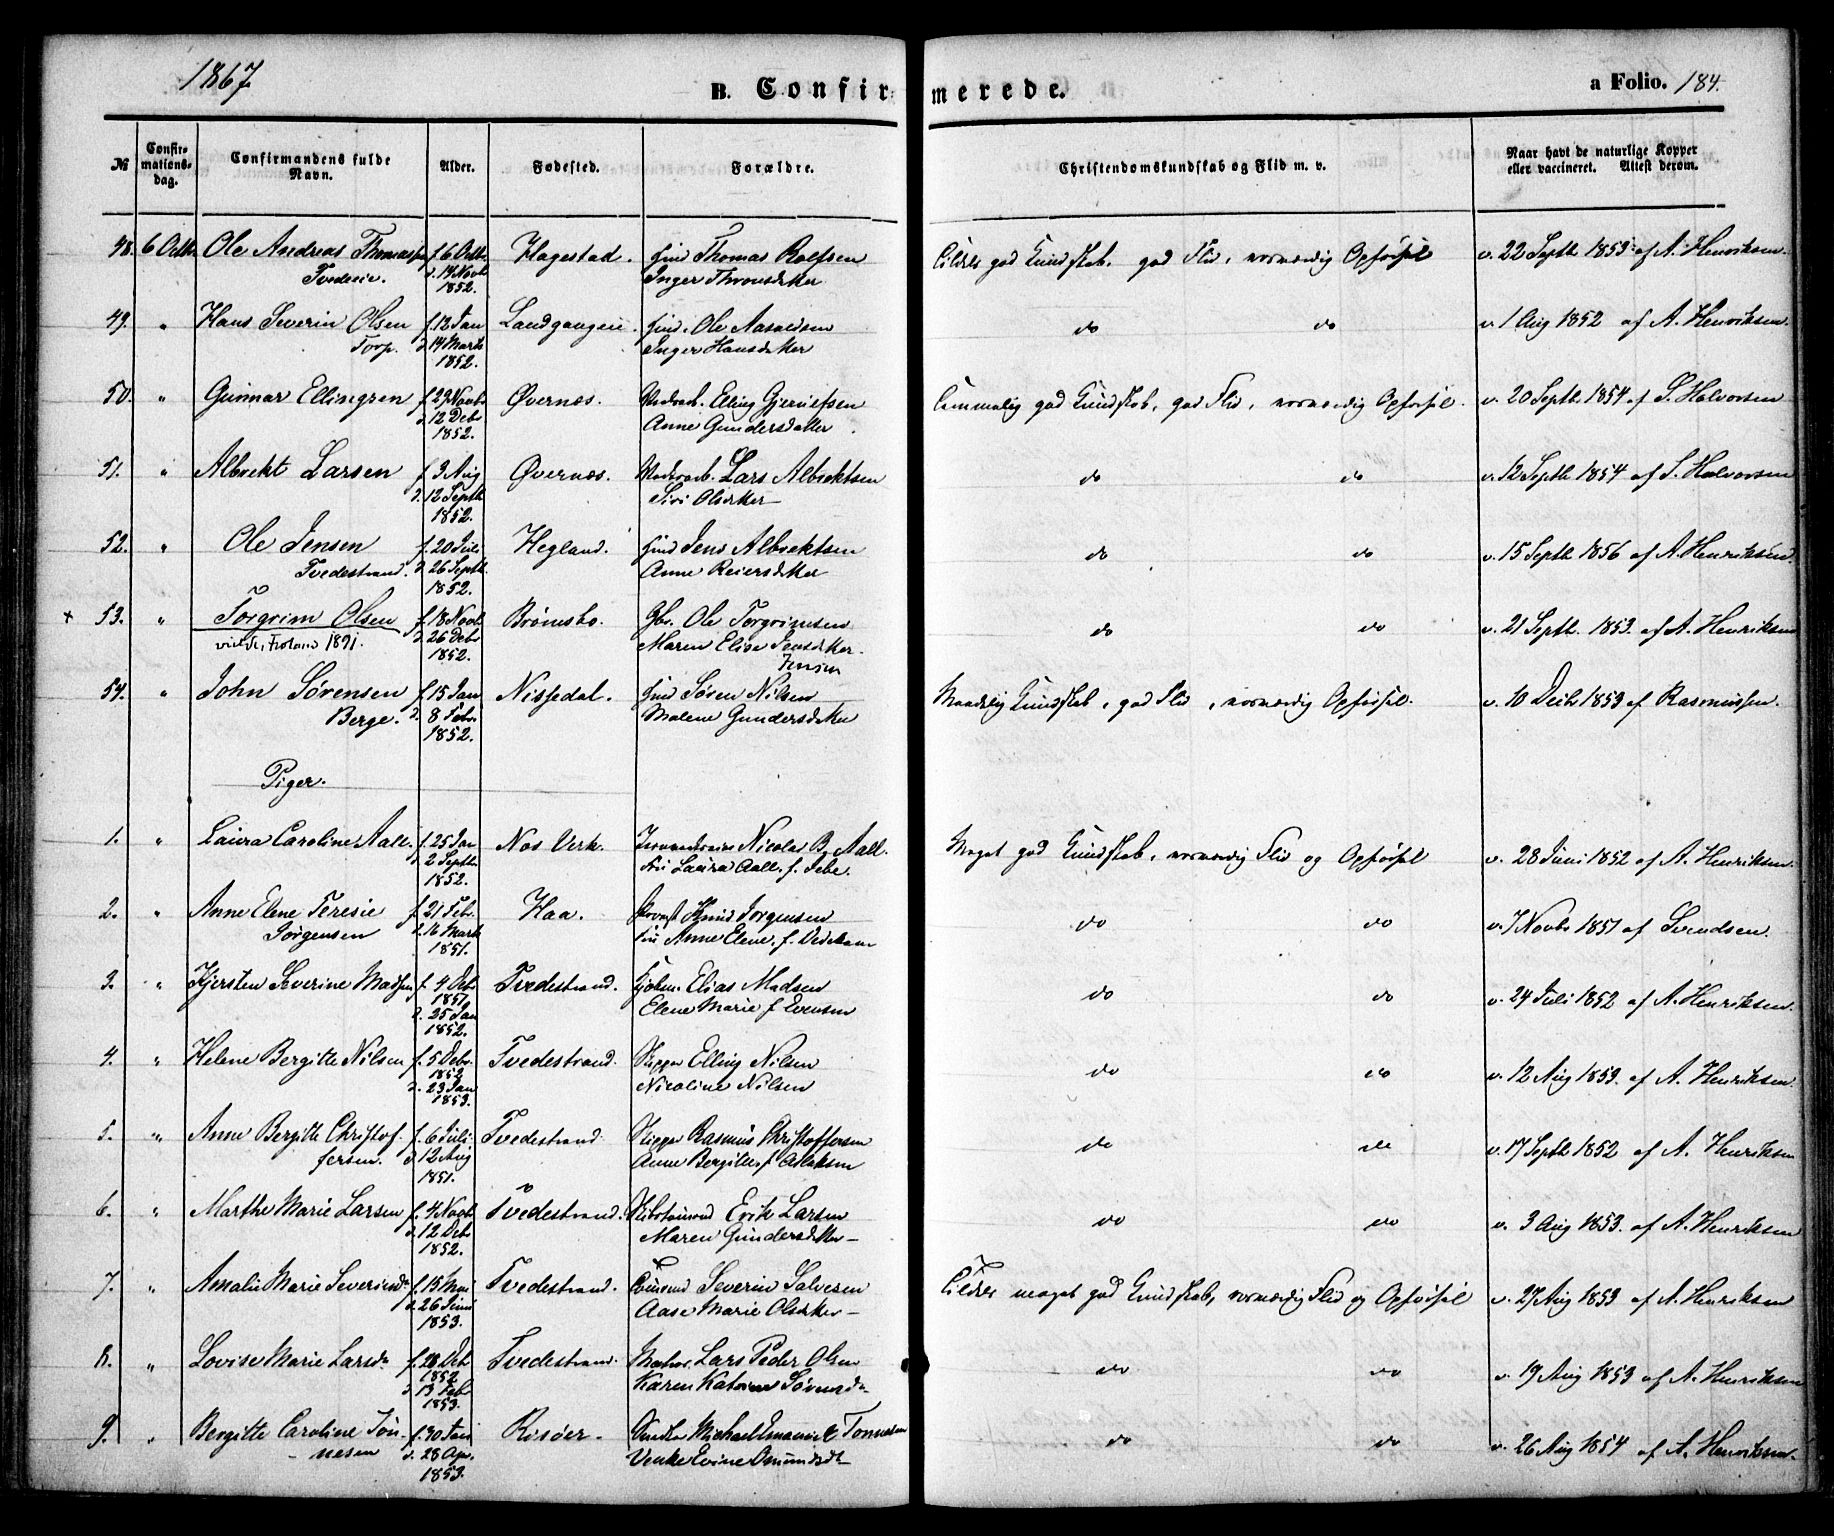 1867
B. Confirmerede.
a Folio. 184.
№
Confirmationsdag.
Confirmandens fulde Navn.
Alder.
Fødested.
Forældre.
Christendomskundskab og Flid m. v.
Naar havt de naturlige Kopper eller vaccineret. Attest derom.
48. 6 Octbr. Ole Andreas Thomassen f. 6 Octbr. Hagestad. Thomas Rolfsen god Kundskab. god Flid, Opførsel v. 22 Septb 1853 af A. Henriksen.
Tvedene. d. 14 Novb 1852. Inger
49. " Hans Severin Olsen f. 13 Jan Landgangen. Ole Aasuldsen do do v. 1 Aug 1852 af A. Henriksen.
Torp. d. 14 Marts 1852. Inger Hansdatter
50. " Gunnar Ellingsen f. 29 Novb Øvernæs. Elling god Kundskab, god Flid, Opførsel. v. 20 Septb 1854 af S. Halvorsen
d. 12 Debr 1852. Anne Gundersdatter
51. " Albrekt Larsen f. 3 Aug Øvernæs. Lars Albrektsen do do v. 12 Septb 1854 af S. Halvorsen
d. 12 Septb 1852. Siri Olsdatter
52. " Ole Jensen f. 20 Juli Hegland. Jens Albrektsen do do v. 15 Septb 1856 af A. Henriksen.
Tvedestrand. d. 26 Septb. 1852. Anne Reiersdatter
+ 53. " Torgrim Olsen f. 18 Novb Brømsbo. Gbr. Ole Torgrimsen do do v. 21 Septb. 1853. af A. Henriksen
1891. d. 26 Debr 1852. Maren Elise Jensdatter.
Jensen
54. " John Sørensen f. 15 Jan Nissedal. Søren Nilsen Maadelig Kundskab, god Flid, Opførsel. v. 10 Decbr 1853 af Rasmussen.
Berge. d. 8 Febr. 1852. Malene Gundersdatter
Piger.
1. " Laura Caroline Aall. f. 25 Jan Næs Verk. Nicolai B. Aall. Meget god Kundskab, Flid og Opførsel v. 28 Juni 1852 af A. Henriksen.
d. 2 Septb. 1852. Laura Aall. f.
2. " Anne Elene Teresie f. 21 Feb. Haa. Provst Knud Jørgensen do do v. 7 Novbr 1851 af Svendsen.
Jørgensen d. 16 Marts 1851. Anne Elene. f.
3. " Kjersten Severine Madsen f. 4 Debr 1851. Tvedestrand. Elias Madsen do do v. 24 Juli 1852 af A. Henriksen.
d. 25 Jan 1852. Elene Marie f. Evensen
4. " Helene Bergitte Nilsen f. 5 Debr. 1852 Tvedestrand. Skipper Elling Nilsen do do v. 12 Aug 1853. af A. Henriksen.
d. 23 Jan 1853. Nicoline Nilsen
5. " Anne Bergitte Christof- f. 6 Juli Tvedestrand. Skipper Rasmus Christoffersen do do v. 17 Septb 1852 af A. Henriksen
fersen. d. 12 Aug 1851. Anne Bergitte f. Aslaksen
6. " Marthe Marie Larsen f. 4 Novb Tvedestrand. Erik Larsen do do v. 3 Aug 1853. af A. Henriksen
d. 12 Debr 1852. Maren Gundersdatter
7. " Amalie Marie Severinsdtr f. 15 Mai Tvedestrand. Severin Salvesen meget god Kundskab, Flid og Opførsel v. 27 Aug 1853 af A. Henriksen
d. 26 Juni 1853. Aase Marie Olsdatter
8. " Lovise Marie Larsdtr f. 28 Debr 1852 Tvedestrand. Lars Peder Olsen do do v. 19 Aug 1853 af A. Henriksen
d. 13 Feb 1853. Karen Katrine Sørensdtr
9. " Bergitte Caroline Tøn- f. 30 Risøer. Tønnesen do do v. 26 Aug 1854 af A. Henriksen.
nesen d. 28 Apr. 1853. Venke Evine Omundsdtr